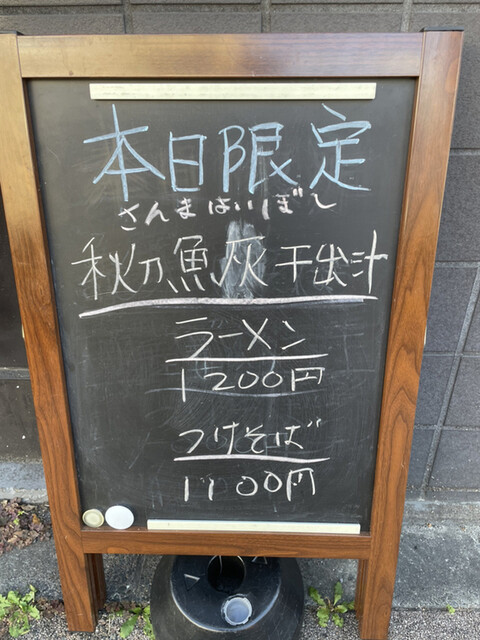 本日限定
さんまはいぼし
秋刀魚灰干出汁
ラーメン
1200円
つけそば
1100円